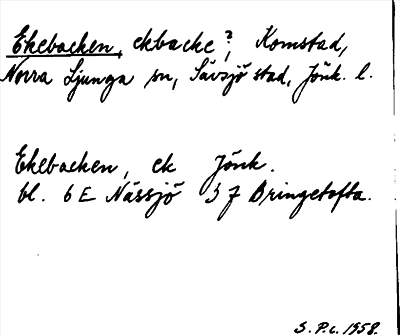 Ekebacken, ekbacke?, Komstad,
Norra Ljunga sn, Sävsjö stad, Jönk. l.
Ekebacken, ek Jönk.
bl. 6 E Nässjö 3 f Bringetofta.
S. P.c. 1958.